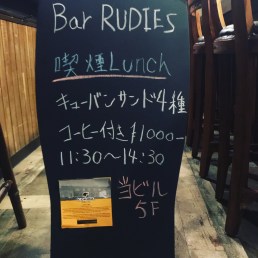 Bar RUDIES
喫煙Lunch
キューバンサンド4種
コーヒー付き ¥1000-
11:30〜14:30
当ビル
5F